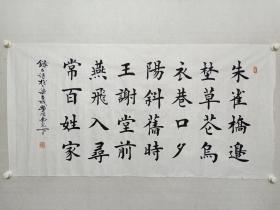 朱雀橋邊
埜草芲烏
衣巷口夕
陽斜舊時
王謝堂前
燕飛入尋
常百姓家